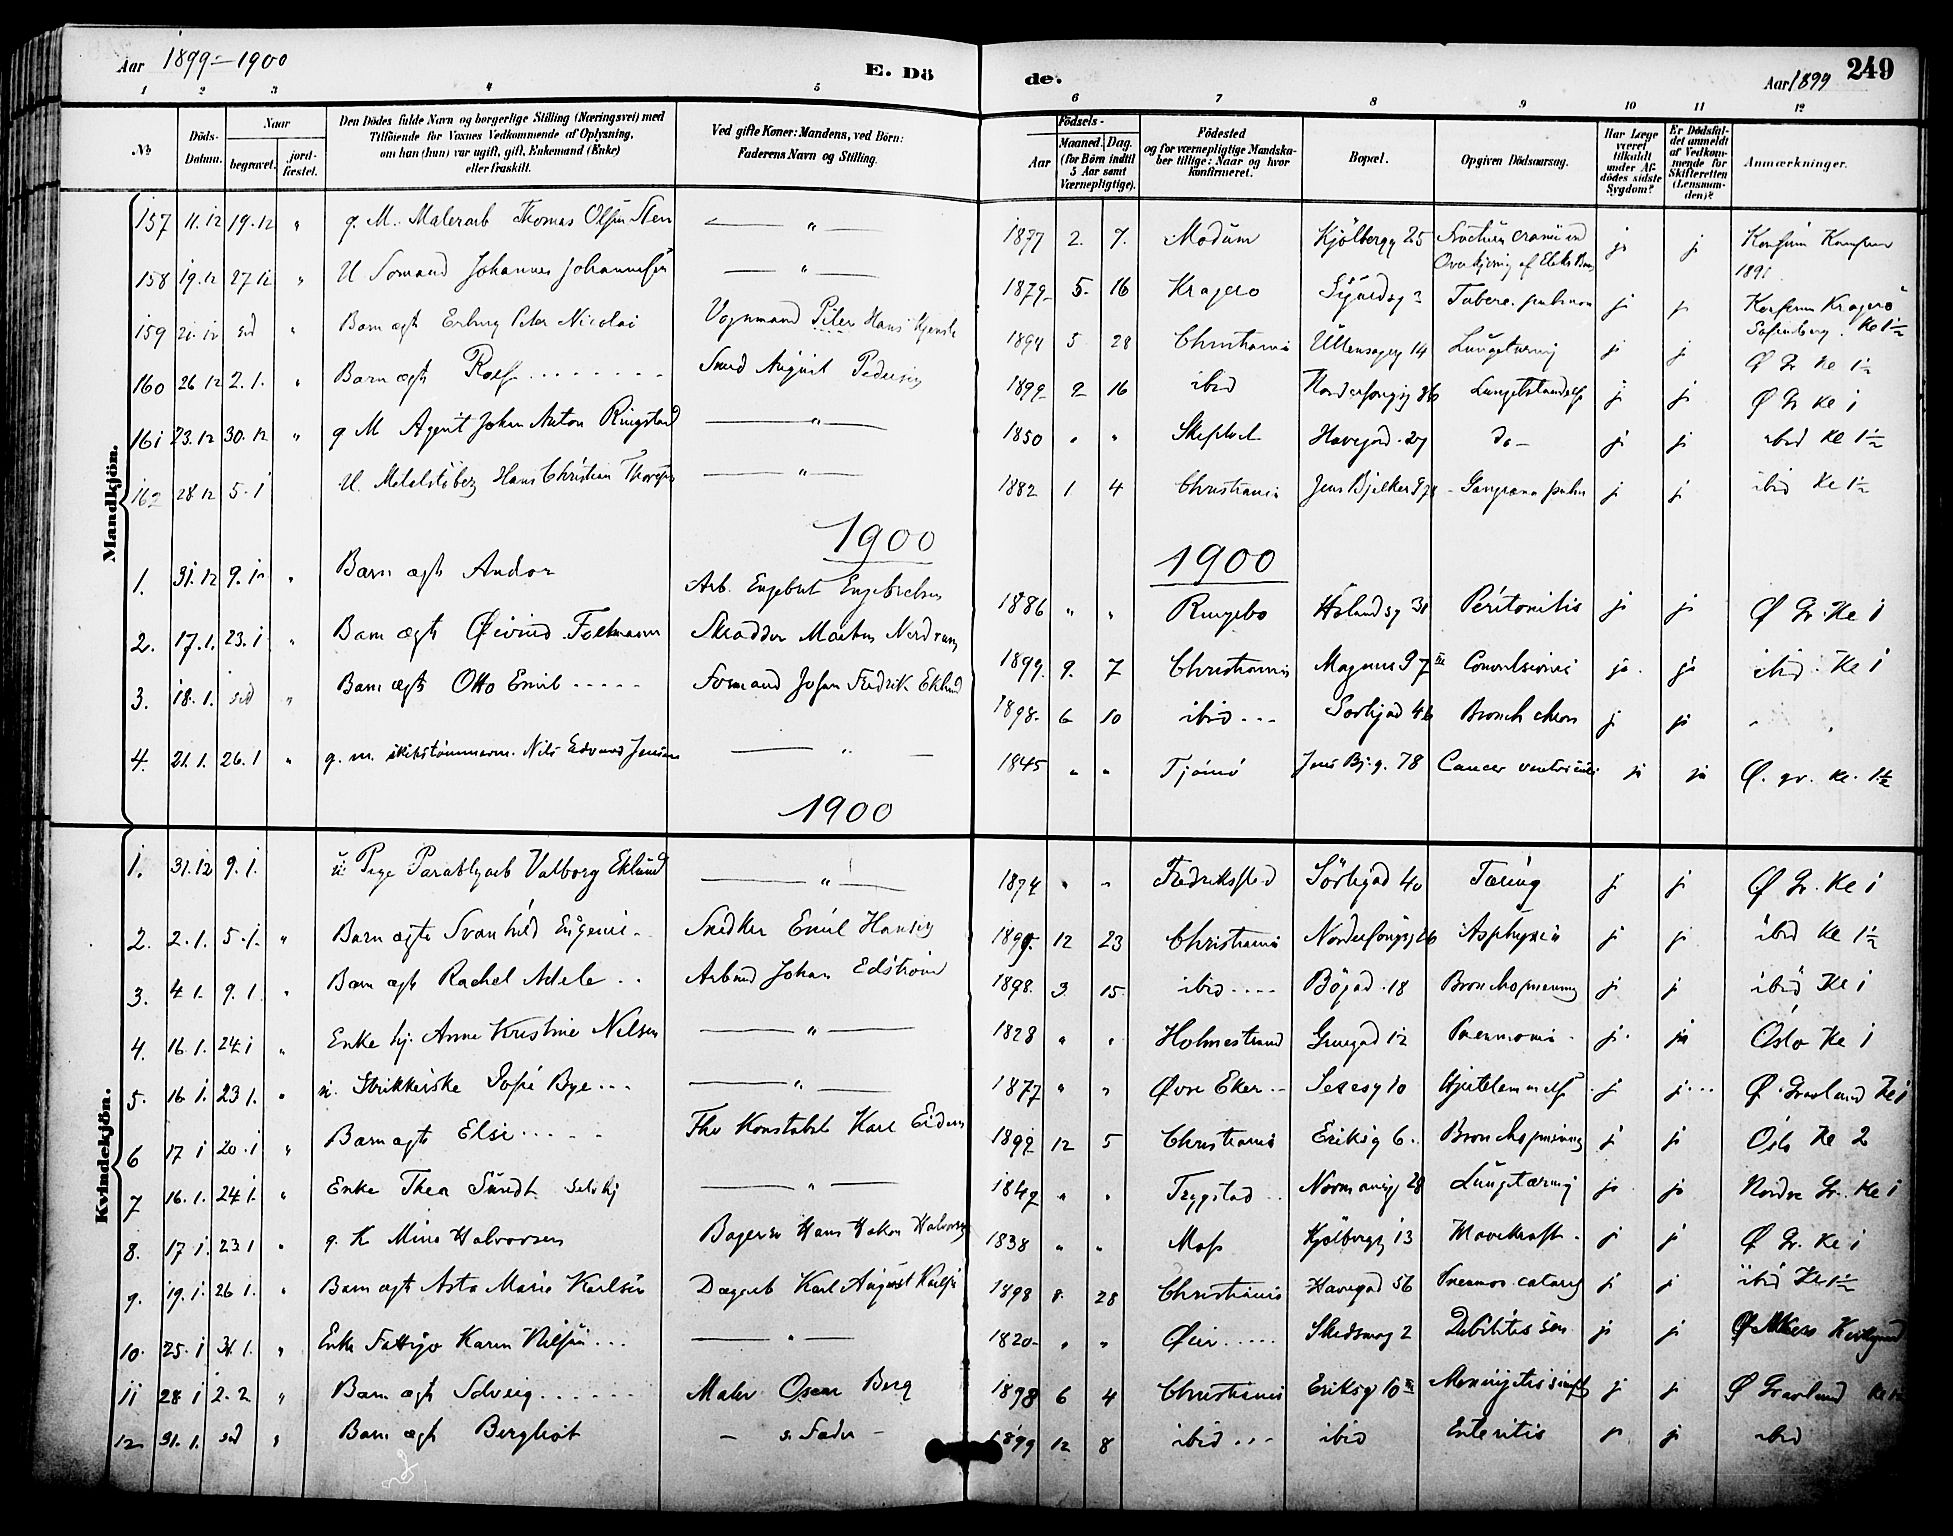 Aar 1899-1900
E. Dö
de.
Aar 1899
249
1 2 3 4 5 6 7 8 9 10 11 12
No
Döds-Datum.
Naar
begravet.
jord-fæstet.
Den Dödes fulde Navn og borgerlige Stilling (Næringsvei) med
Tilföiende for Voxnes Vedkommende af Oplysning,
om han (hun) var ugift, gift, Enkemand (Enke)
eller fraskilt.
Ved gifte Koner: Mandens, ved Börn:
Faderens Navn og Stilling.
Födsels-
Aar
Maaned. Dag.
(for Börn indtil
5 Aar samt
Værnepligtige).
Födested
og for værnepligtige Mandska-
ber tillige: Naar og hvor
konfirmeret.
Bopæl.
Opgiven Dödsaarsag.
Har Læge
været
tilkaldt
under Af-
dödes sidste
Sygdom?
Er Dödsfal-
det anmeldt
af Vedkom-
mende for
Skifteretten
(Lensman-
den)?
Anmærkninger.
Mandkjön.
157 11.12 19.12 " g. M. Malerarb Thomas Olsen Steen — " — 1877 2. 7. Modum Kjölbergg 25 j j
1891
158 19.12 27.12 " U Sömand Johannes Johannesen — " — 1879 5. 16 Kragerö Tuberc. pulmon j j
159 21.12 sd " Barn ægt Erling Peter Nicolai Vognmand Peter Hans 1894 5 28 Christiania Ullensagerg 14 Lungetæring j j Ø Gr Ke 1½
160 26.12 2.1. " Barn ægte Rolf Smed August Pedersen 1899 2 16 ibid Nordrefongsg j j Ø Gr Ke 1
161 23.12 30.12 " g M Agent Johan Anton Ringstad — " — 1850 " " Havegad 27 do j j ibid Ke 1½
162 28.12 5.1 U. Metalstöber Hans Christian — " — 1882 1 4 Christiania Jens Bjelkes g 78 Gangræna pulm j j ibid Ke 1½
1900
1900
1. 31.12 9.1 " Barn ægte Andor Arb. Engebret Engebretsen 1886 " " Ringebo 31 Peritonitis j j Ø Gr. Ke 1
2. 17.1. 23.1 " Barn ægte Øivind Skrædder Morten 1899. 9. 7 Christiania Magnus g 7 III Convulsioner ja. ja ibid Ke 1
3. 18.1. sd " Barn ægte Otto Emil Formand Johan Fredrik Eklund 1898. 6 10 ibid Sörligad 46 Bronch chron j ja " "
4. 21.1. 26.1 " g. m. skibstömmerm. Nils Edvard Jensen — " — 1845 " " Tjömö Jens Bj. g. 78 Cancer ventriculi ja ja Ø. gr. ke. 1½
1900
Kvindekjön.
1. 31.12 9.1. u. Pige Valborg Eklund — " — 1874 " " Fredriksstad Sörligad 40 Tæring j j Ø Gr. Ke 1
2. 2.1. 5.1. " Barn ægte Svanhild Eugenie Snedker Emil Hansen 1899. 12 23 Christiania Asphyxia j j ibid Ke 1½
3. 4.1. 9.1. " Barn ægt Rachel Adele Arbmd Johan Edström 1898. 3. 15. ibid Bögad 18 Bronchopneumoni j j ibid Ke 1
4. 16.1. 24.1 " Enke hj. Anne Kristine Nilsen — " — 1828 " " Holmestrand Grügad 12 Pneumonia j. ja Oslo Ke 1
5. 16.1. 23.1. " u. Strikkerske Sofie Bye — " — 1877 " " Øvre Eker j j Ø. Grønland Ke 1
6 17.1 20.1 " Barn ægte Elsi Konstabel Karl 1899 12 5 Christiania Eriksg 6. Bronchopneumoni j j Oslo Ke 2
7 16.1. 24.1. " Enke Thea Sundt selvhj — " — 1849 " " Trygstad Normannsg 28 Lungetæring ja ja Nordre Gr. Ke 1
8. 17.1. 23.1 " g. K. Mina Halvorsen Bager Hans Hakon Halvorsen 1838 " " Moss Kjölbergg 13 Mavekræft j j Ø Gr. Ke 1
9. 19.1. 26.1. " Barn ægte Asta Marie Karlsen Dagarb Karl August Karlsen 1898 8. 28 Christiania Havegad 56 Pneumon. catarrh j j ibid Ke 1½
10. 25.1 31.1. " Enke Karen Nilsen — " — 1820 " " Öier Skedsmog 2 Debilitas sen j j
11 28.1 2.2 " Barn ægte Solveig Maler Oscar Berg 1898 6 4 Christiania Eriksg 10 III Meningitis simpl j j Ø Grønland
12 31.1. sd " Barn ægt Bergliot — s. Fader — 1899 12 8 ibid ibid Enteritis j j ibid